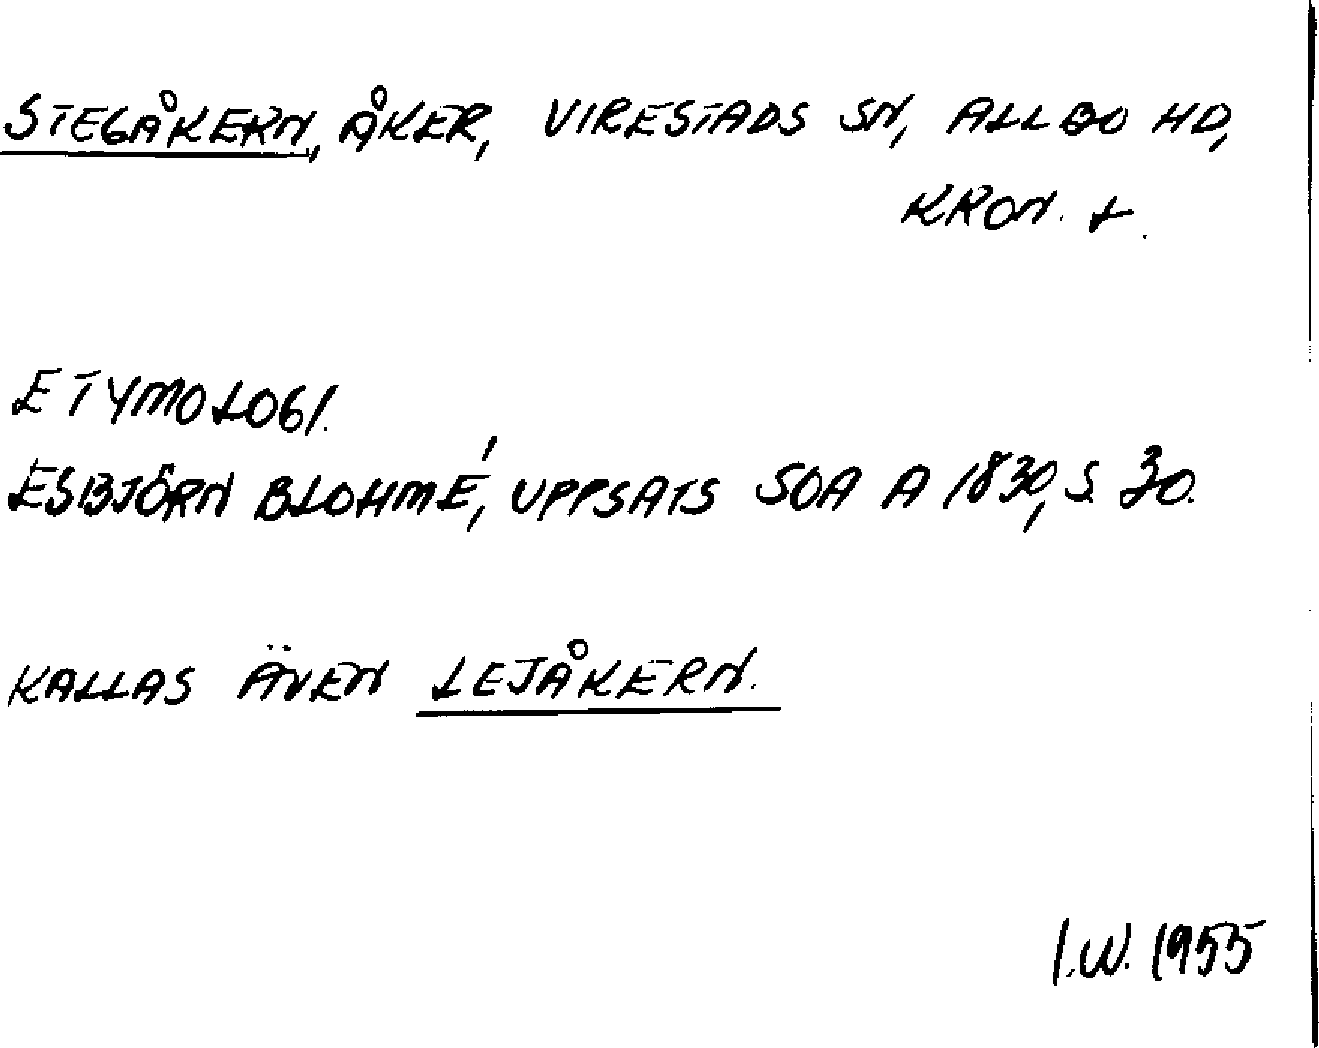 STEGÅKERN, ÅKER, VIRESTADS SN, ALLBO HD,
KRON. L.
ETYMOLOGI.
ESBJÖRN BLOHMÉ, UPPSATS SOA A 1830, S. 30.
KALLAS ÄVEN LEJÅKERN.
I.W. 1955